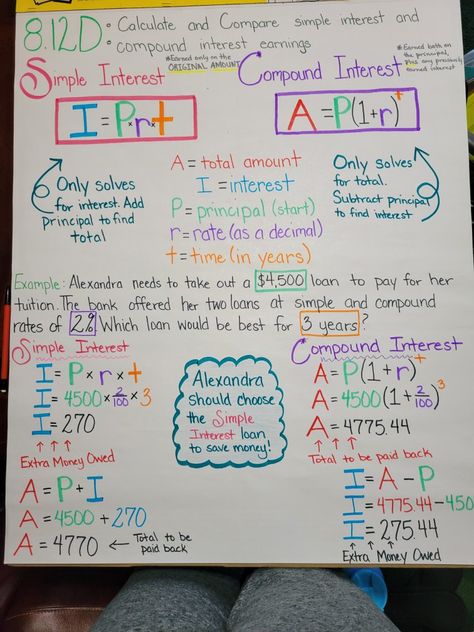 8.12D: • Calculate and Compare simple interest and
• compound interest earnings
*Earned only on the
ORIGINAL AMOUNT
*Earned both on
the principal,
Plus any previously
earned interest
Simple Interest
I = P × r × t
Only solves
for interest. Add
Principal to find
total
Compound Interest
A = P(1+r)^t
Only solves
for total.
Subtract principal
to find interest
A = total amount
I = interest
P = principal (start)
r = rate (as a decimal)
t = time (in years)
Example: Alexandra needs to take out a $4,500 loan to pay for her
tuition. The bank offered her two loans at simple and compound
rates of 2%. Which loan would be best for 3 years?
Simple Interest
I = P × r × t
I = 4500 × 2/100 × 3
I = 270
Extra Money Owed
A = P + I
A = 4500 + 270
A = 4770 ← Total to be
paid back
Alexandra
should choose
the Simple
Interest loan
to save money!
Compound Interest
A = P(1+r)^t
A = 4500(1 + 2/100)^3
A = 4775.44
Total to be paid back
I = A - P
I = 4775.44 - 450
I = 275.44
Extra Money Owed